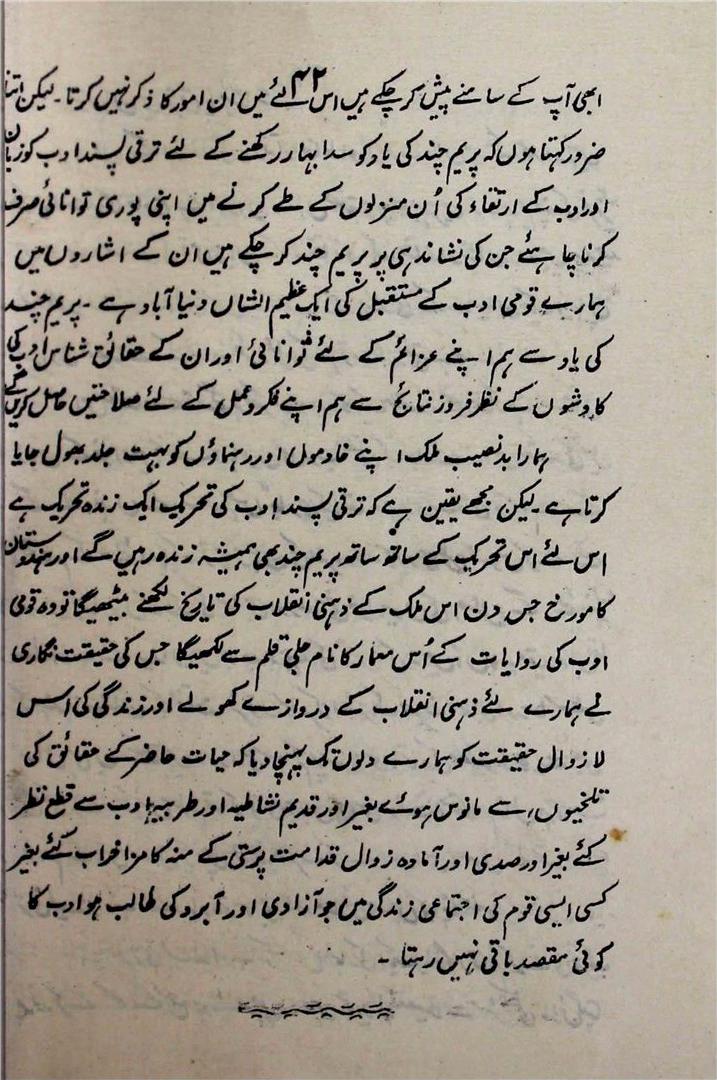 ۴۲
ابھی آپ کے سامنے پیش کر چکے ہیں اس لئے میں ان امور کا ذکر نہیں کرتا ۔ لیکن اتنا
ضرور کہتا ہوں کہ پریم چند کی یاد کو سدا بہار رکھنے کے لئے ترقی پسند ادب کو زبان
اور ادب کے ارتقاء کی اُن منزلوں کے طے کرنے میں اپنی پوری توانائی صرف
کرنا چاہئے جن کی نشاندہی پر پریم چند کر چکے ہیں ان کے اشاروں میں
ہمارے قومی ادب کے مستقبل کی ایک عظیم الشاں دنیا آباد ہے ۔ پریم چند
کی یاد سے ہم اپنے عزائم کے لئے توانائی اور ان کے حقائق شناس ادب کی
کاوشوں کے نظر فروز نتائج سے ہم اپنے فکر و عمل کے لئے صلاحتیں حاصل کریں گے
ہمارا بدنصیب ملک اپنے خادموں اور رہنماؤں کو بہت جلد بھول جایا
کرتا ہے ۔ لیکن مجھے یقین ہے کہ ترقی پسند ادب کی تحریک ایک زندہ تحریک ہے
اس لئے اس تحریک کے ساتھ ساتھ پریم چند بھی ہمیشہ زندہ رہیں گے اور ہندوستان
کا مورخ جس دن اس ملک کے ذہنی انقلاب کی تاریخ لکھنے بیٹھیگا تو وہ قومی
ادب کی روایات کے اُس معمار کا نام جلی قلم سے لکھیگا جس کی حقیقت نگاری
نے ہمارے لئے ذہنی انقلاب کے دروازے کھولے اور زندگی کی اس
لازوال حقیقت کو ہمارے دلوں تک پہنچا دیا کہ حیات حاضر کے حقائق کی
تلخیوں سے مانوس ہوئے بغیر اور قدیم نشاطیہ اور طربیہ ادب سے قطع نظر
کئے بغیر اور صدی اور آمادہ زوال قدامت پرستی کے منہ کا مزا خراب کئے بغیر
کسی ایسی قوم کی اجتماعی زندگی میں جو آزادی اور آبرو کی طالب ہو ادب کا
کوئی مقصد باقی نہیں رہتا ۔